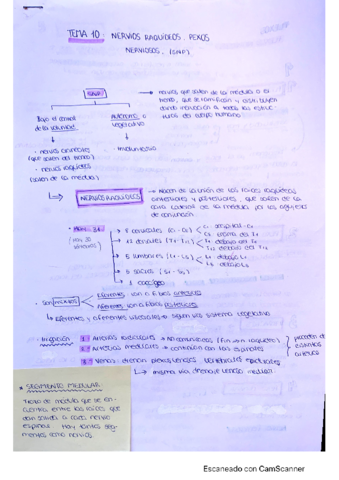 TEMA 10: NERVIOS RAQUÍDEOS. PLEXOS
NERVIOSOS. (SNP)
nervios que salen de la médula o el
tronco, que se ramifican y distribuyen
dando inervación a todas las estruc
turas del cuerpo humano
Bajo el control
de la voluntad
AUTÓNOMO o
vegetativo
· nervios craneales
(que salen del tronco)
· nervios raquídeos
(salen de la médula)
· Involuntario
NERVIOS RAQUÍDEOS
nacen de la unión de las raíces raquídeas
anteriores y posteriores, que salen de la
cara lateral de la médula por los agujeros
de conjunción
8 cervicales (C1 - C8)
12 dorsales (T1 - T12)
5 lumbares (L1 - L5)
5 sacros (S1 - S5)
1 coccígeo
· Son MIXTOS
Eferentes: van a fibras anteriores
Aferentes: van a fibras posteriores
Eferentes y aferentes viscerales → siguen vías sistema vegetativo
· Irrigación
1. Arterias radiculares →
2. Arterias medulares →
3. Venas: drenan plexos venosos vertebrales
misma vía drenaje venoso medular
* SEGMENTO MEDULAR
Trozo de médula que se en-
cuentra entre las raíces que
dan salida a cada nervio
espinal. Hay tantos seg-
mentos como nervios.
Escaneado con CamScanner